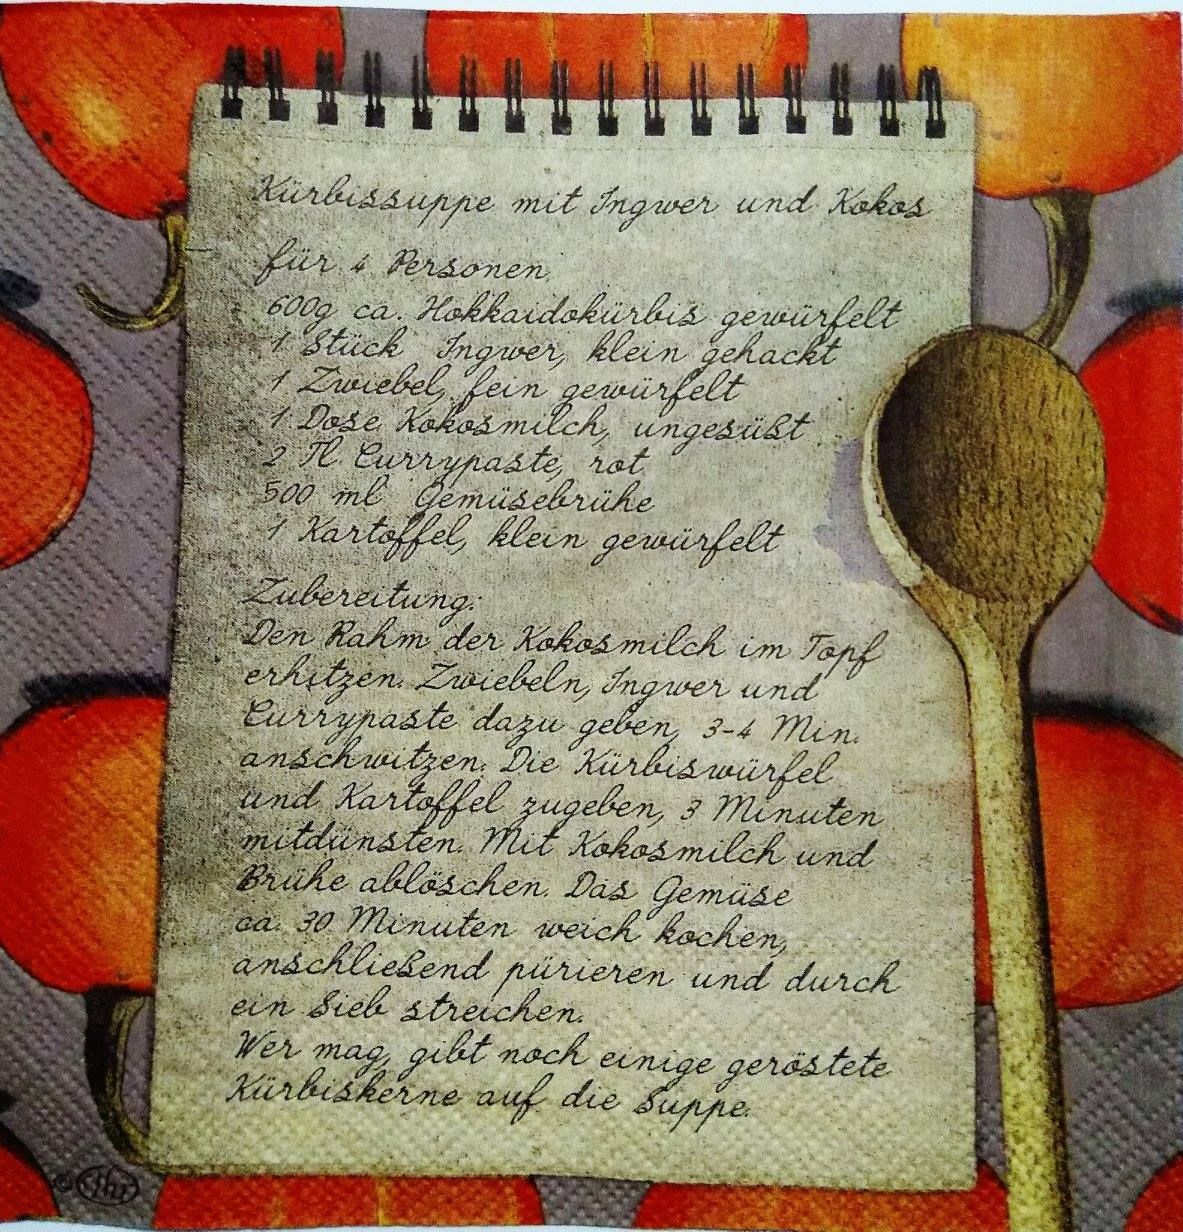 Kürbissuppe mit Ingwer und Kokos
für 4 Personen
600g ca. Hokkaidokürbis gewürfelt
1 Stück Ingwer, klein gehackt
1 Zwiebel, fein gewürfelt
1 Dose Kokosmilch, ungesüßt
2 Tl Currypaste, rot
500 ml Gemüsebrühe
1 Kartoffel, klein gewürfelt
Zubereitung:
Den Rahm der Kokosmilch im Topf
erhitzen. Zwiebeln, Ingwer und
Currypaste dazu geben, 3-4 Min.
anschwitzen. Die Kürbiswürfel
und Kartoffel zugeben, 3 Minuten
mitdünsten. Mit Kokosmilch und
Brühe ablöschen. Das Gemüse
ca. 30 Minuten weich kochen,
anschließend pürieren und durch
ein Sieb streichen.
Wer mag, gibt noch einige geröstete
Kürbiskerne auf die Suppe.
© ihr